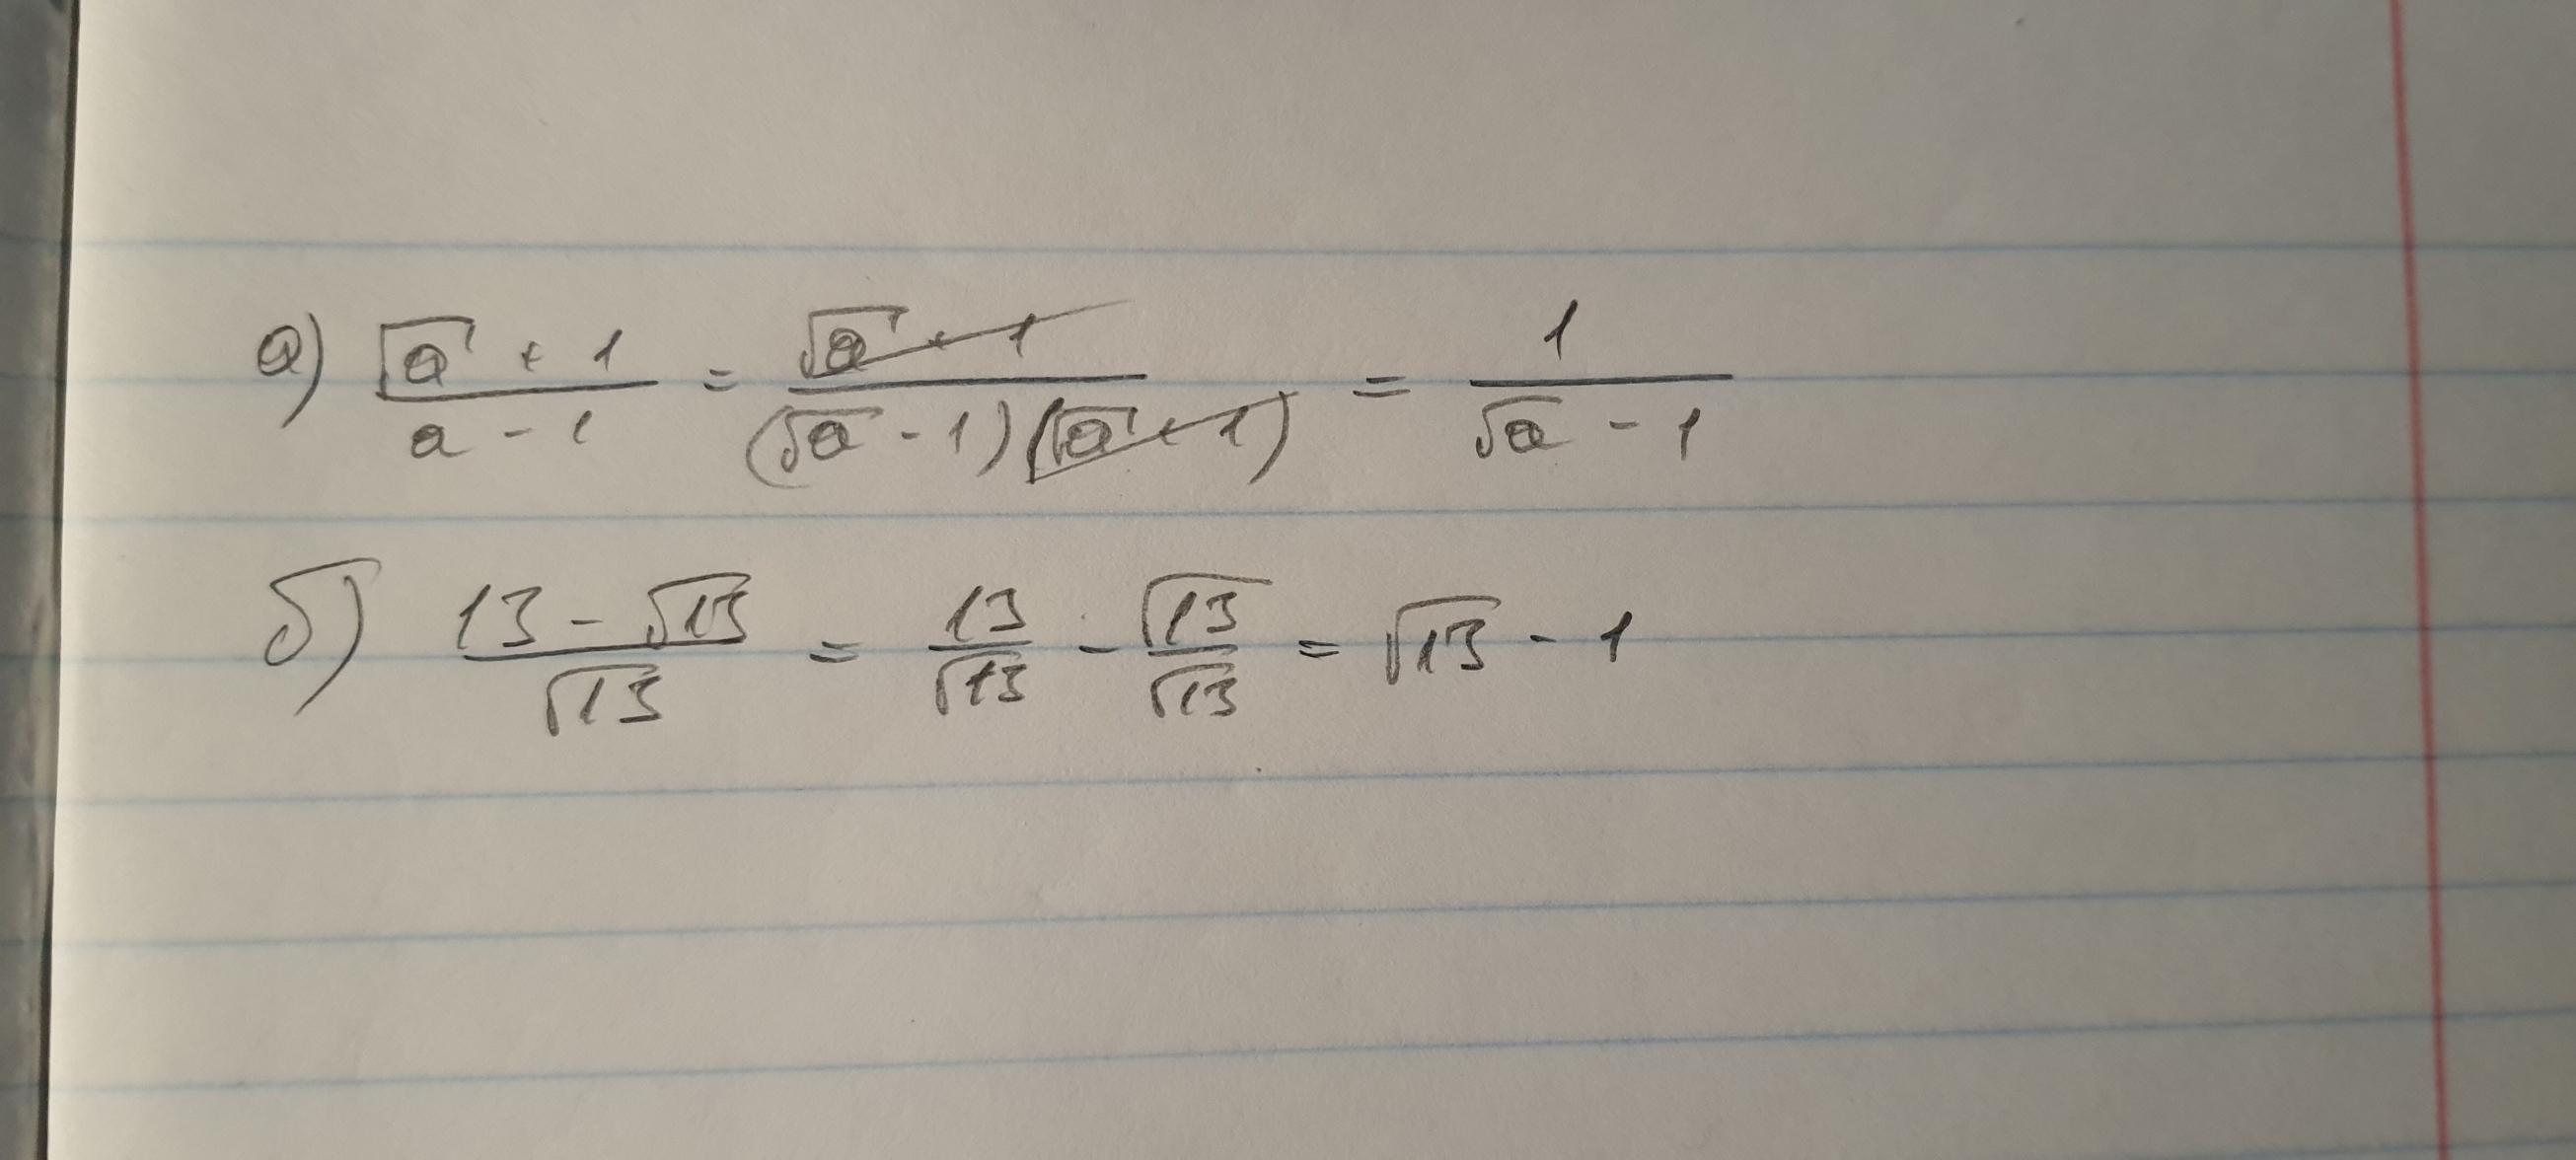 а) (√a + 1)/(a - 1) = (√a + 1)/((√a - 1)(√a + 1)) = 1/(√a - 1)
б) (13 - √13)/√13 = 13/√13 - √13/√13 = √13 - 1